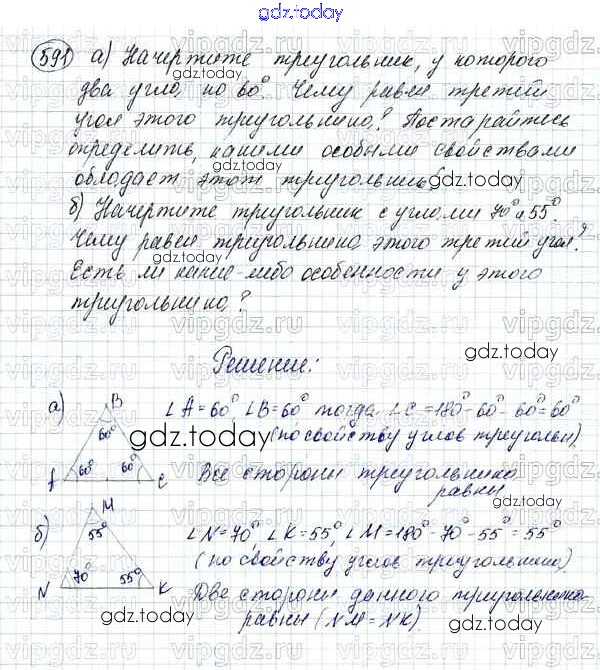 gdz.today
591 а) Начертите треугольник, у которого
два угла по 60°. Чему равен третий
угол этого треугольника? Постарайтесь
определить, какими особыми свойствами
обладает этот треугольник?
б) Начертите треугольник с углами 70° и 55°.
Чему равен треугольника этого третий угол?
Есть ли какие-либо особенности у этого
треугольника?
Решение:
а) B ∠A = 60° ∠B = 60° тогда ∠C = 180° - 60° - 60° = 60°
60° (по свойству углов треугольн).
60° 60° Все стороны треугольника
C равны
б) M ∠N = 70°, ∠K = 55°, ∠M = 180° - 70° - 55° = 55°
55° (по свойству углов треугольника).
70° 55° Две стороны данного треугольника
N K равны (NM = NK).
gdz.today